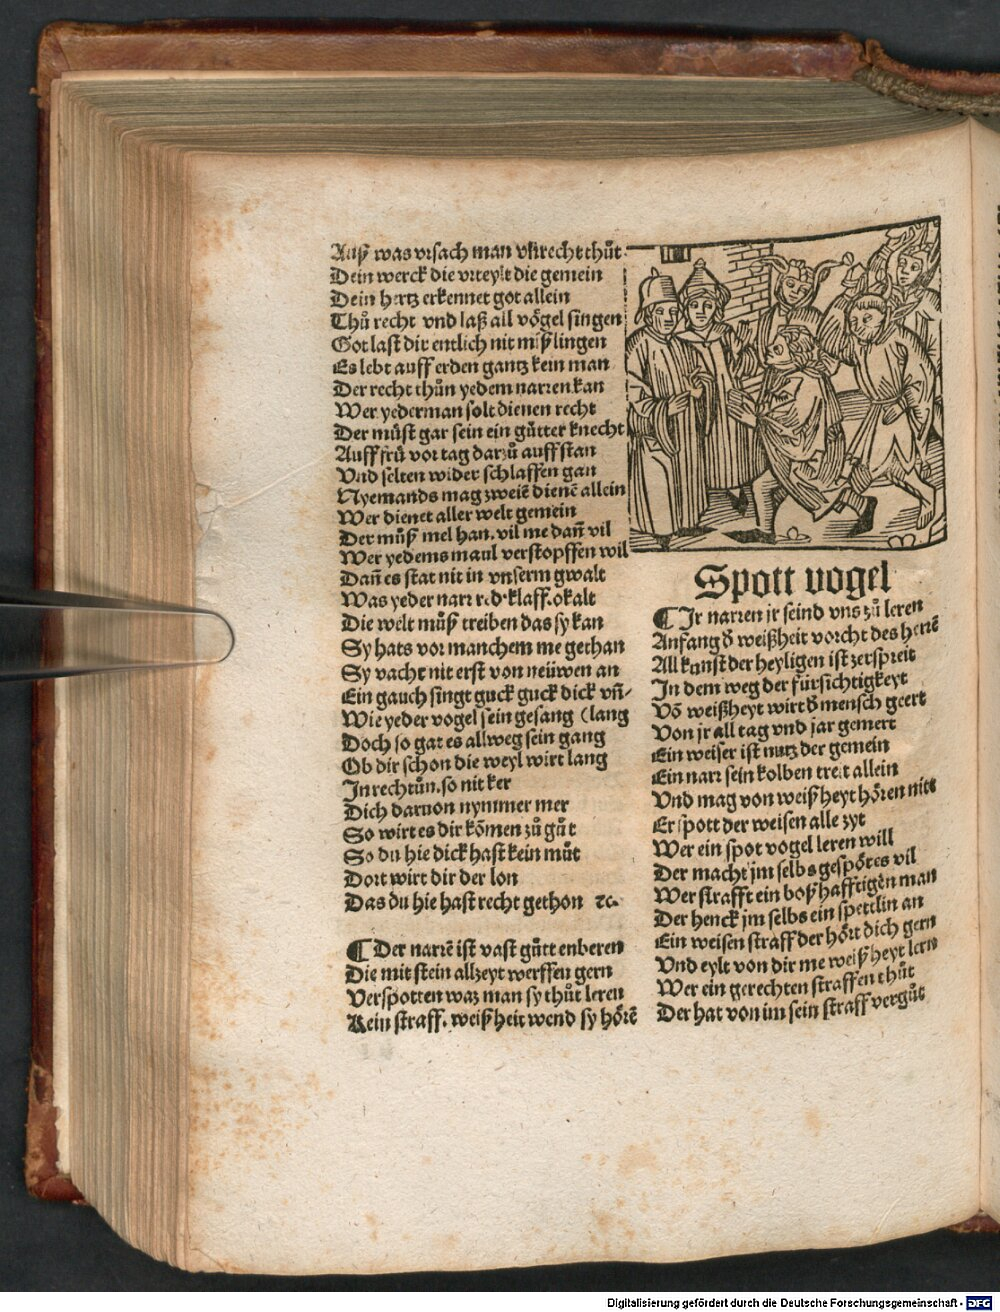 Auß was vrsach man vnrecht thůt
Dein werck die vrteylt die gemein
Dein hertz erkennet got allein
Thů recht vnd laß all vögel singen
Got last dir entlich nit mißlingen
Es lebt auff erden gantz kein man
Der recht thůn yedem narren kan
Wer yederman solt dienen recht
Der můst gar sein ein gůtter knecht
Auff frů vor tag darzů auffstan
Vnd selten wider schlaffen gan
Nyemands mag zweiē dienē allein
Wer dienet aller welt gemein
Der můß mel han, vil me dañ vil
Wer yedems maul verstopffen wil
Dañ es stat nit in vnserm gwalt
Was yeder narr red klaff, o kalt
Die welt můß treiben das sy kan
Sy hats vor manchem me gethan
Sy vacht nit erst von neüwen an
Ein gauch singt guck guck dick vñ-
Wie yeder vogel sein gesang (lang
Doch so gat es allweg sein gang
Ob dir schon die weyl wirt lang
In rechtůn. so nit ker
Dich daruon nymmer mer
So wirt es dir kōmen zů gůt
So du hie dick hast kein můt
Dort wirt dir der lon
Das du hie hast recht gethon ꝛc.
¶ Der narrē ist vast gůtt enberen
Die mit stein allzeyt werffen gern
Verspotten waz man sy thůt leren
Kein straff. weißheit wend sy hörē
Spott vogel
¶ Ir narren jr seind vns zů leren
Anfang d̄ weißheit vorcht des herrē
All kunst der heyligen ist zerspreit
In dem weg der fürsichtigkeyt
Vō weißheyt wirt d̄ mensch geert
Von jr all tag vnd jar gemert
Ein weiser ist nutz der gemein
Ein narr sein kolben treit allein
Vnd mag von weißheyt hören nits
Er spott der weisen alle zyt
Wer ein spot vogel leren will
Der macht jm selbs gespötes vil
Wer strafft ein boßhafftigen man
Der henck jm selbs ein spettlin an
Ein weisen straff der hört dich gern
Vnd eylt von dir me weißheyt lern
Wer ein gerechten straffen thůt
Der hat von im sein straff vergůt
Digitalisierung gefördert durch die Deutsche Forschungsgemeinschaft - DFG